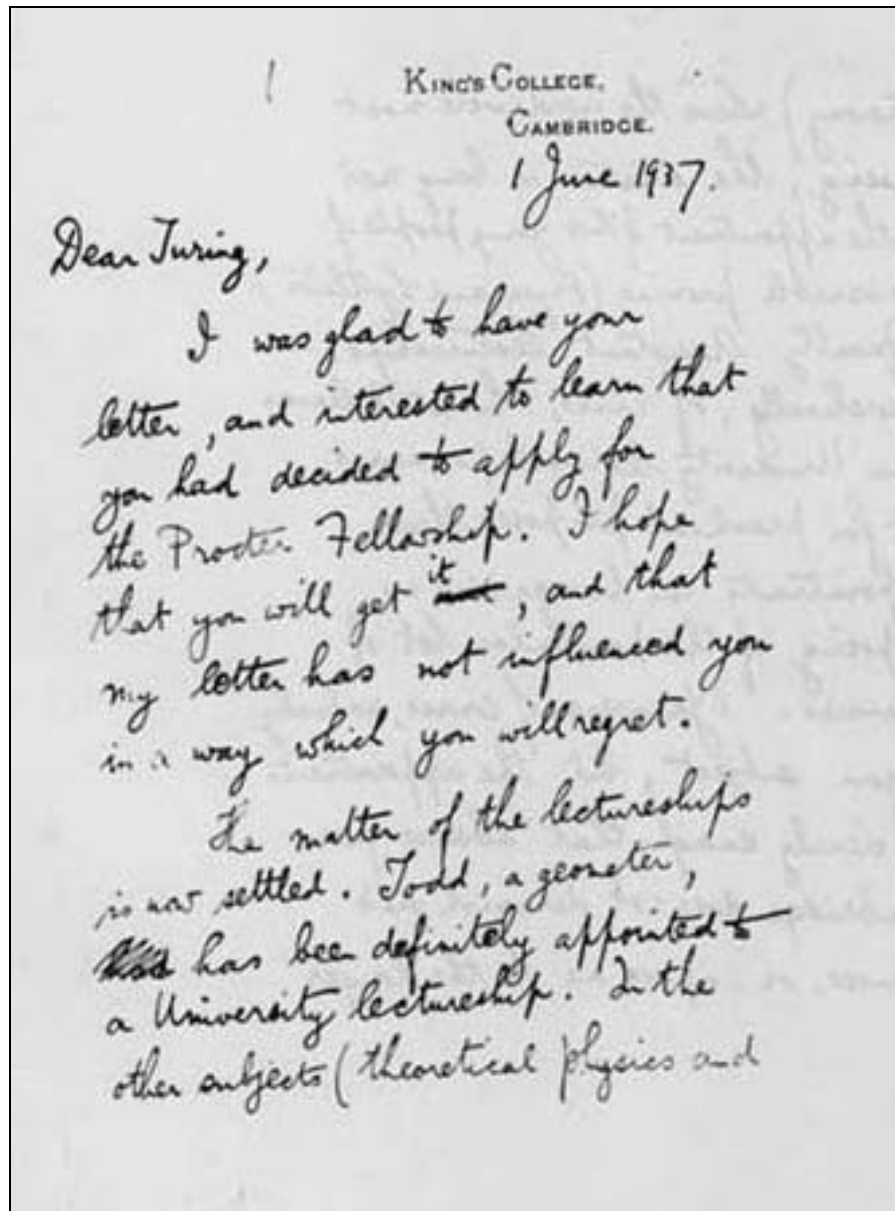 KING'S COLLEGE,
CAMBRIDGE.
1 June 1937.
Dear Turing,
I was glad to have your
letter, and interested to learn that
you had decided to apply for
the Procter Fellowship. I hope
that you will get it, and that
my letter has not influenced you
in a way which you will regret.
The matter of the lectureships
is now settled. Todd, a geometer,
has been definitely appointed to
a University lectureship. In the
other subjects (theoretical physics and